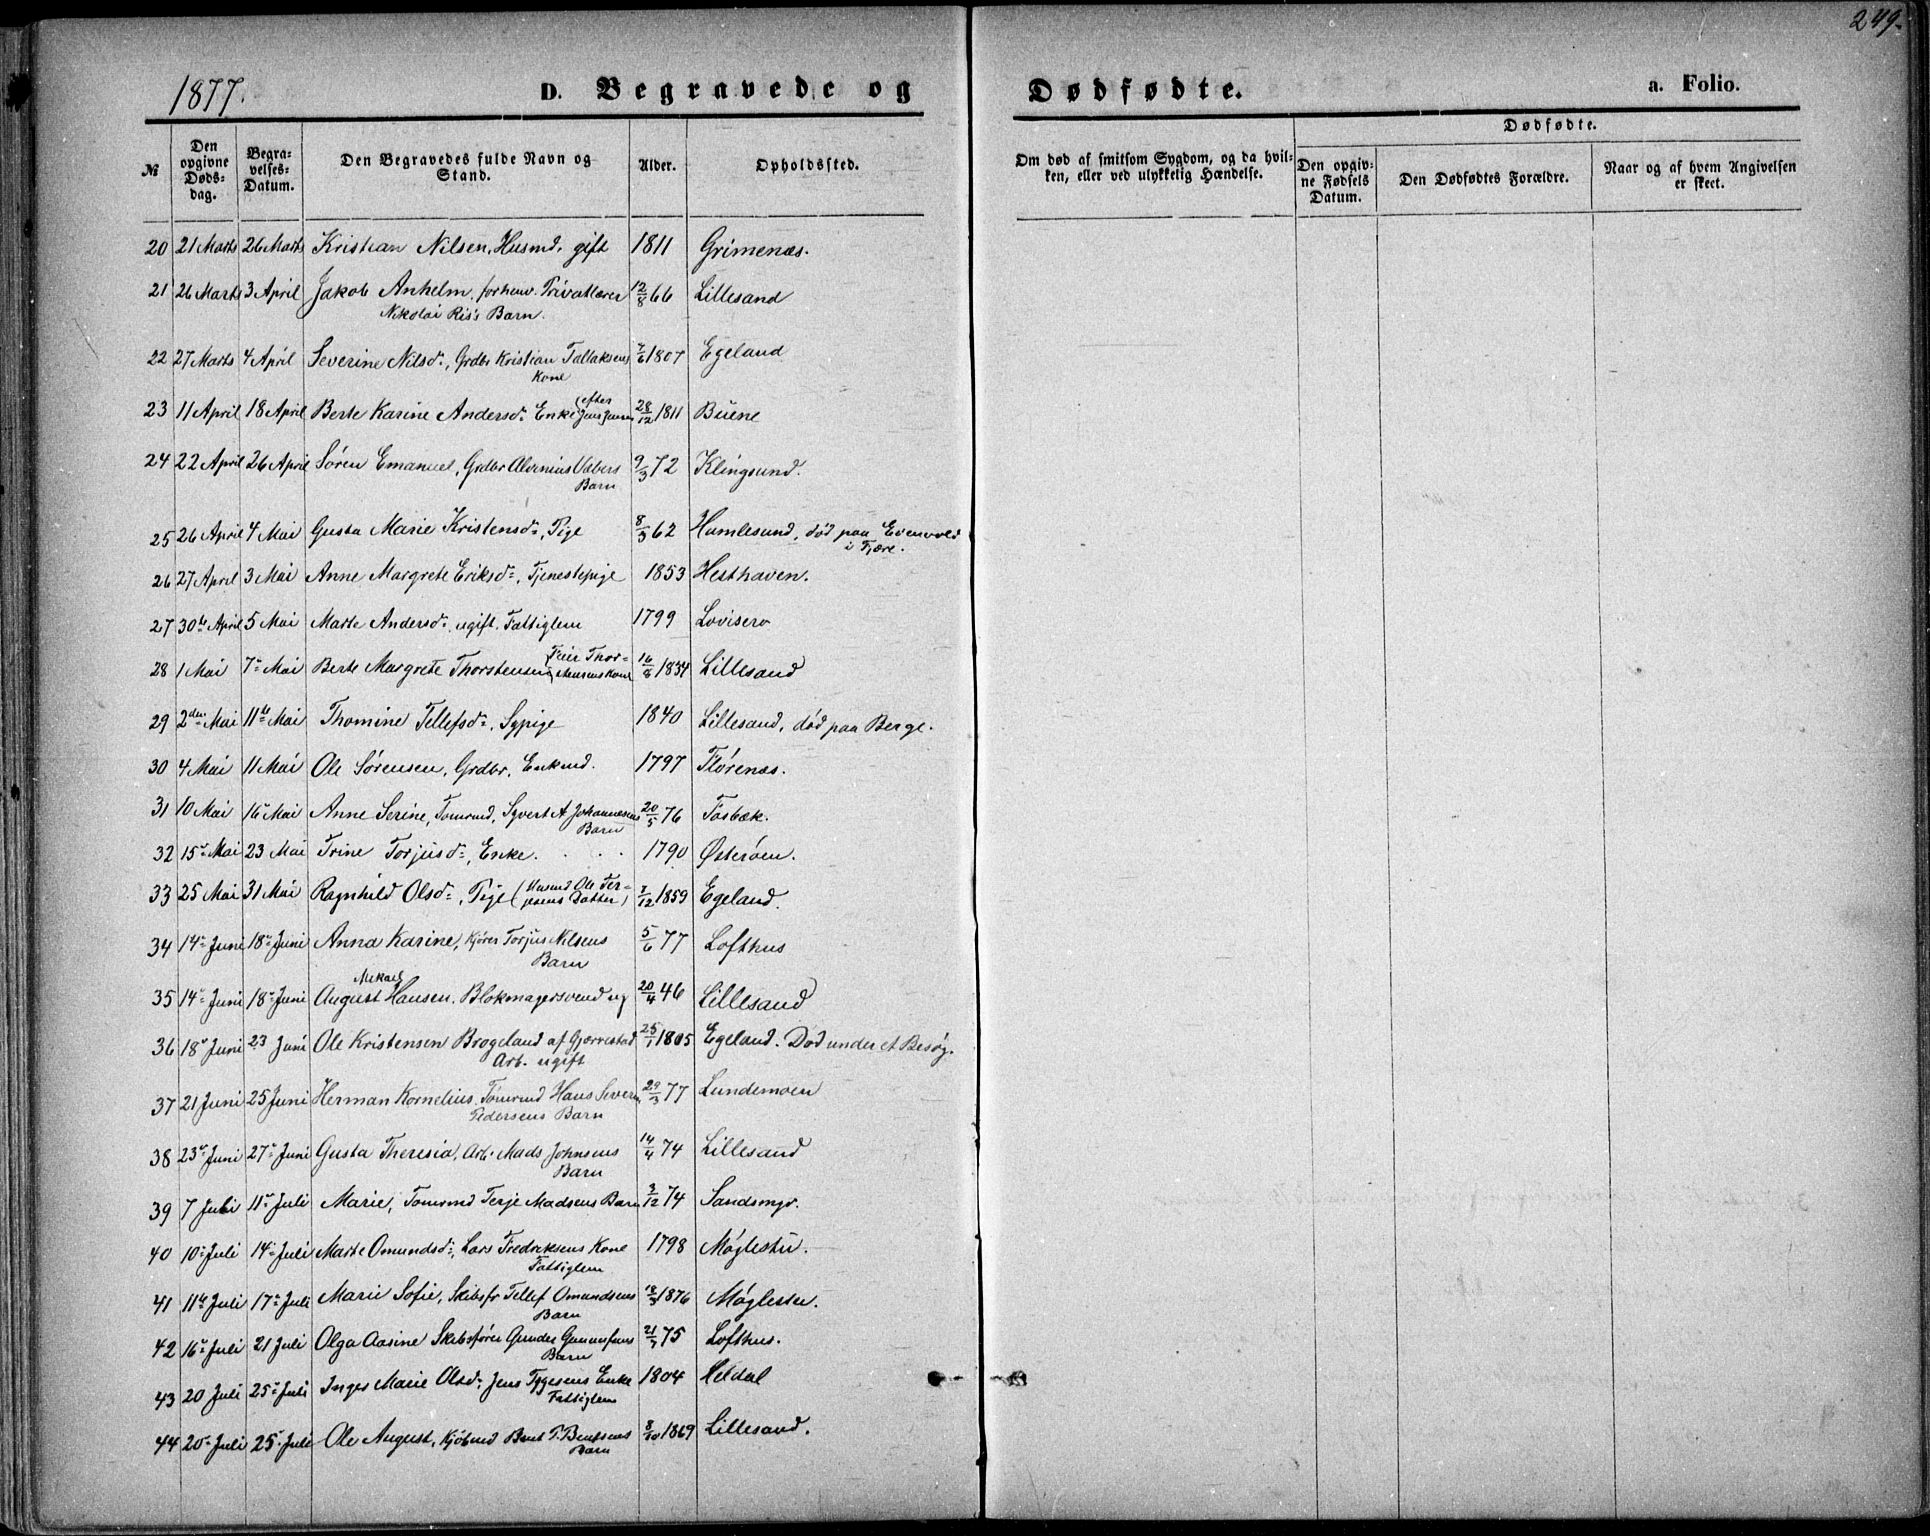 249.
1877. D. Begravede og Dødfødte. a. Folio.
№ Den opgivne Døds-dag. Begra-velses-Datum. Den Begravedes fulde Navn og Stand. Alder. Opholdssted. Om død af smitsom Sygdom, og da hvil-ken, eller ved ulykkelig Hændelse. Dødfødte.
Den opgiv-ne Fødsels Datum. Den Dødfødtes Forældre. Naar og af hvem Angivelsen er skeet.
20 21 Marts 26 Marts Kristian Nilsen, Husmd. gift 1811 Grimenæs.
21 26 Marts 3 April Jakob Anhelm, forhenv. Privatlærer 12/8 66 Lillesand
Nikolai Ris's Barn.
22 27 Marts 4 April Severine Nilsd:, Grdbr Kristian Tallaksens /6 1807 Egeland
Kone
23 11 April 18 April Berte Karine Andersd: Enke efter Jens Jensen 28/12 1811 Buene
24 22 April 26 April Søren Emanuel, Grdbr Alvinius 9/3 72 Klingsund.
Barn
25 26 April 4 Mai Gusta Marie Kristensd:, Pige 8/3 62 Humlesund, død paa Evenvold
i Fjære.
26 27 April 3 Mai Anne Margrete Eriksd:, Tjenestepige 1853 Hesthaven.
27 30te April 5 Mai Marte Andersd: ugift. Fattiglem 1799 Lovisero
28 1 Mai 7: Mai Berte Margrete Thorstensen (Peer Thor-
stensens Kone 16/8 1834 Lillesand
29 2den Mai 11te Mai Thomine Tellefsd:, Sypige 1840 Lillesand, død paa Berge.
30 4 Mai 11 Mai Ole Sørensen, Grdbr, Enkmd. 1797 Flørenæs.
31 10 Mai 16: Mai Anne Serine, Tømrmd, Syvert A Johannesens 20/5 76 Fosbæk.
Barn
32 15: Mai 23 Mai Trine Torjusd:, Enke. . . . 1790 Østerøen.
33 25 Mai 31 Mai Ragnhild Olsd:, Pige (Husmd Ole Ter-
jesens Datter) /12 1859 Egeland.
34 14: Juni 18: Juni Anna Karine, Kjører Torjus Nilsens 5/6 77 Lofthus
Barn
Mikael
35 14: Juni 18: Juni August Hansen. Blokmagersvend ug 20/4 46 Lillesand
36 18: Juni 23 Juni Ole Kristensen Brogeland af Gjærrestad 25/1 1805 Egeland. Død under et Besøg.
Arb. ugift
37 21 Juni 25 Juni Herman Kornelius. Tømrmd Hans Severin 29/3 77 Lundemoen
Pedersens Barn
38 23: Juni 27: Juni Gusta Theresia, Arb. Mads Johnsens 14/4 74 Lillesand
Barn
39 7 Juli 11: Juli Marie, Tømrmd Terje Madsens Barn 3/12 74 Sandsmyr.
40 10: Juli 14: Juli Marte Omundsd:, Lars Fredriksens Kone 1798 Møglestu.
Fattiglem
41 11te Juli 17: Juli Marie Sofie, Skibsfr Tellef Omundsens 1876 Møglestu.
Barn
42 16: Juli 21 Juli Olga Aasine Skibsfører Gunder 21/7 75 Lofthus.
Barn
43 20 Juli 25: Juli Inger Marie Olsd: Jens Tygesens Enke 1804 Heldal
Fattiglem
44 20: Juli 25: Juli Ole August, Kjøbmd Bent T. Bentsens 8/10 1869 Lillesand.
Barn